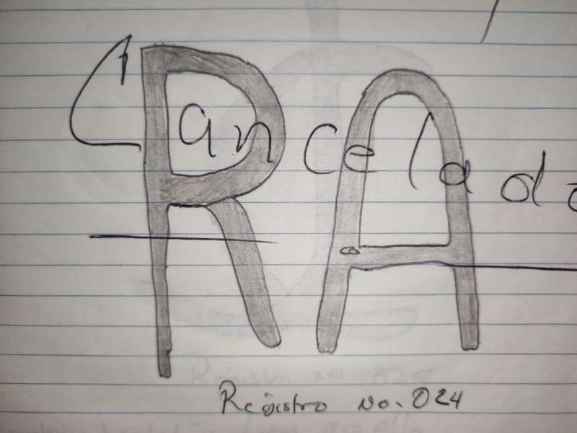 Cancelado
RA
Registro No. 024